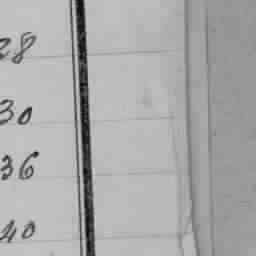 28
30
36
40